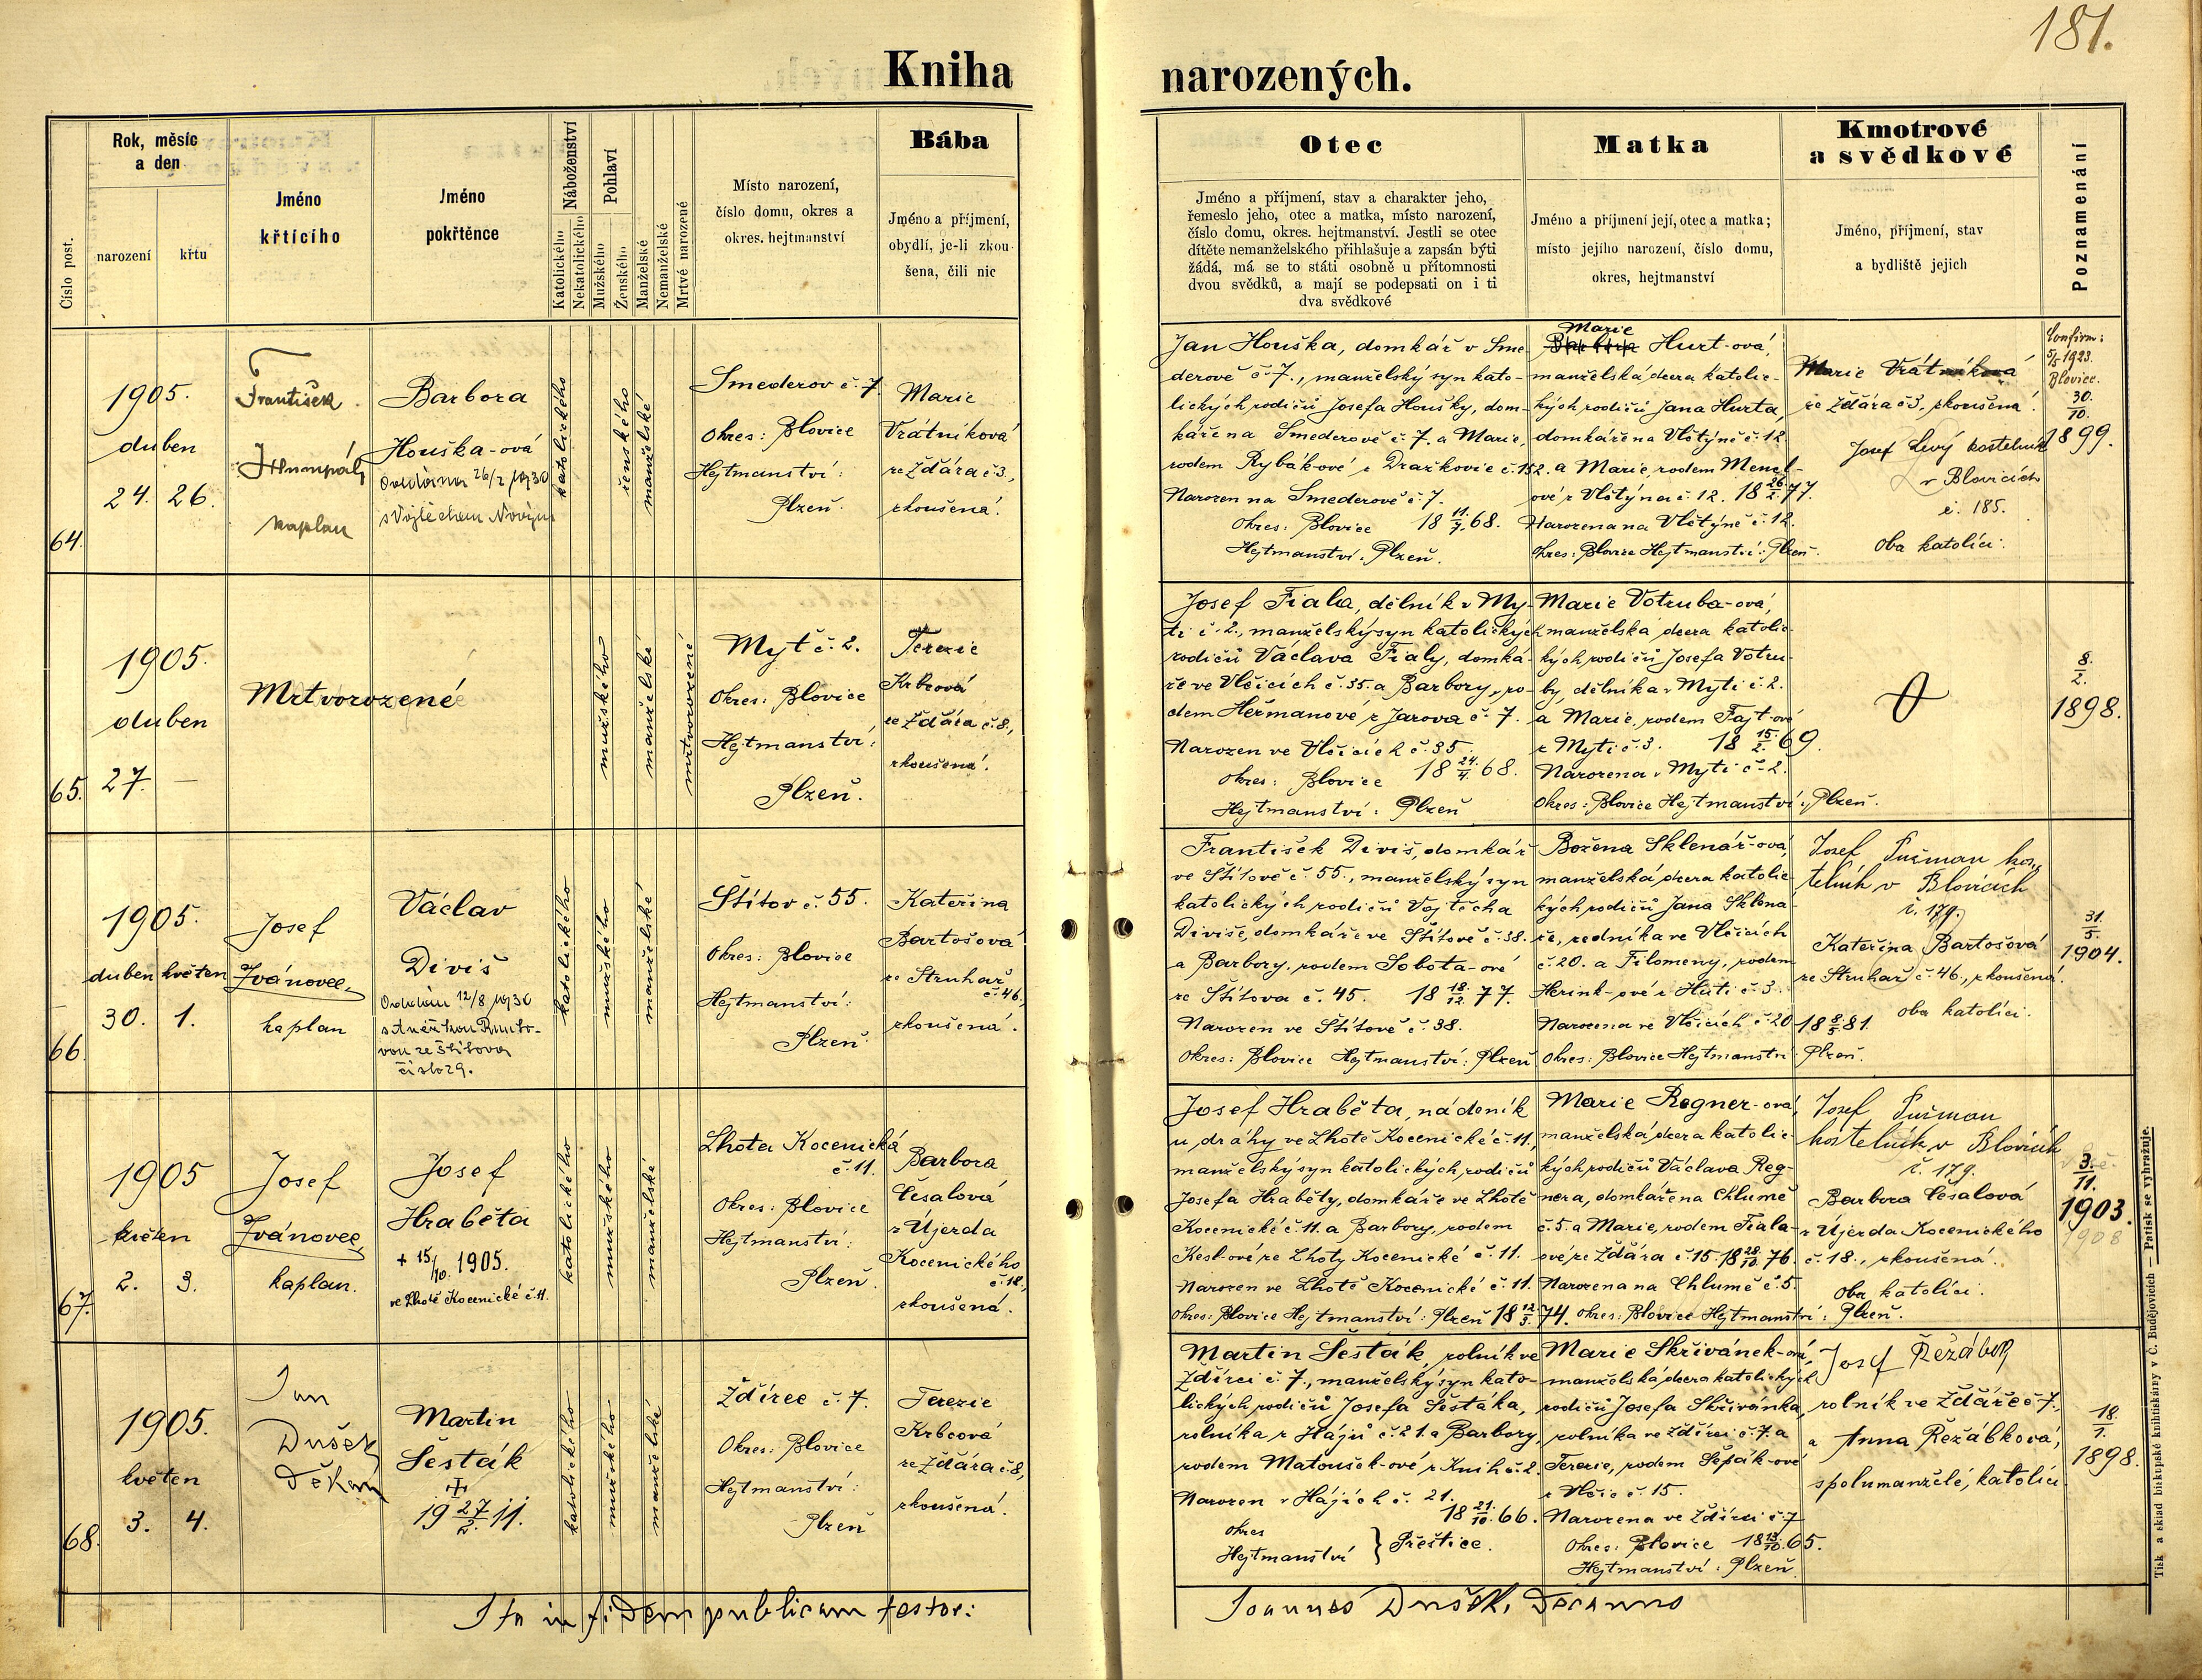 181.
Kniha narozených.
Číslo post.
Rok, měsíc
a den
narození
křtu
Jméno
křtícího
Jméno
pokřtěnce
Náboženství
Katolického
Nekatolického
Pohlaví
Mužského
Ženského
Manželské
Nemanželské
Mrtvé narozené
Místo narození,
číslo domu, okres a
okres. hejtmanství
Bába
Jméno a příjmení,
obydlí, je-li zkou-
šena, čili nic
Otec
Jméno a příjmení, stav a charakter jeho,
řemeslo jeho, otec a matka, místo narození,
číslo domu, okres. hejtmanství. Jestli se otec
dítěte nemanželského přihlašuje a zapsán býti
žádá, má se to státi osobně u přítomnosti
dvou svědků, a mají se podepsati on i ti
dva svědkové
Matka
Jméno a příjmení její, otec a matka;
místo jejího narození, číslo domu,
okres, hejtmanství
Kmotrové
a svědkové
Jméno, příjmení, stav
a bydliště jejich
Poznamenání
64.
1905.
duben
24. 26.
František
kaplan
Barbora
Houška-ová
Oddána 26/2 1930
s Vojtěchem Novým
katolického
ženského
manželské
Smederov č. 7
Okres: Blovice
Hejtmanství:
Plzeň.
Marie
Vrátníková
ze Ždára č 3.,
zkoušená.
Jan Houška, domkář v Sme-
derově č. 7., manželský syn kato-
lických rodičů Josefa Houšky, dom-
káře na Smederově č. 7. a Marie,
rodem Rybák-ové z Dražkovic č. 15
Narozen na Smederově č. 7.
Okres: Blovice 18 11./7. 68.
Hejtmanství: Plzeň.
Marie
Barbora Hurt-ová,
manželská dcera katolic-
kých rodičů Jana Hurta,
domkáře na Vlčtýně č. 12.
a Marie, rodem Mencl-
ové z Vlčtýna č. 12. 18 26./2. 77.
Narozena na Vlčtýně č. 12.
Okres: Blovice Hejtmanství: Plzeň.
Marie Vrátníková
ze Ždára č 3, zkoušená.
Josef Levý kostelník
v Blovicích
č. 185.
Oba katolíci.
Confirm:
5/5 1923.
Blovice.
30./10.
1899.
65.
1905.
duben
27. —
Mrtvorozené
mužského
manželské
mrtvorozené
Myť č. 2.
Okres: Blovice
Hejtmanství:
Plzeň.
Terezie
Krbcová
ze Ždára č. 8.,
zkoušená.
Josef Fiala, dělník v My-
ti č. 2., manželský syn katolických
rodičů Václava Fialy, domká-
ře ve Vlčicích č. 35. a Barbory, ro-
dem Heřmanové z Jarova č. 7.
Narozen ve Vlčicích č. 35.
Okres: Blovice 18 24./4. 68.
Hejtmanství: Plzeň
Marie Votruba-ová,
manželská dcera katolic-
kých rodičů Josefa Votru-
by, dělníka v Myti č. 2.
a Marie, rodem Fajt-ové
z Myti č. 3. 18 15./2. 69.
Narozena v Myti č. 2.
Okres: Blovice Hejtmanství: Plzeň.
8./2.
1898.
66.
1905.
duben květen
30. 1.
Josef
Ivánovec,
kaplan
Václav
Diviš
Oddán 12/8 1930
s Anežkou
vou ze Štítova
číslo 29.
katolického
mužského
manželské
Štítov č. 55.
Okres: Blovice
Hejtmanství:
Plzeň
Kateřina
Bartošová
ze Struhař
č. 46.,
zkoušená.
František Diviš, domkář
ve Štítově č. 55., manželský syn
katolických rodičů Vojtěcha
Diviše, domkáře ve Štítově č. 38.
a Barbory, rodem Sobota-ové
ze Štítova č. 45. 18 18./12. 77.
Narozen ve Štítově č. 38.
Okres: Blovice Hejtmanství: Plzeň
Božena Sklenář-ová,
manželská dcera katolic-
kých rodičů Jana Sklená-
ře, zedníka ve Vlčicích
č. 20. a Filomeny, rodem
Herink-ové z Huti č. 3.
Narozena ve Vlčicích č. 20 18 8./5. 81.
Okres: Blovice Hejtmanství: Plzeň.
Josef Pučman kos-
telník v Blovicích
č. 179.
Kateřina Bartošová
ze Struhař č. 46., zkoušená.
oba katolíci.
31./5.
1904.
67.
1905
květen
2. 3.
Josef
Ivánovec,
kaplan.
Josef
Hraběta
+ 15/10. 1905.
ve Lhotě Kocenické č. 11.
katolického
mužského
manželské
Lhota Kocenická
č. 11.
Okres: Blovice
Hejtmanství:
Plzeň.
Barbora
Česalová
z Újezda
Kocenického
č. 18.,
zkoušená.
Josef Hraběta, nádeník
u dráhy ve Lhotě Kocenické č. 11.,
manželský syn katolických, rodičů
Josefa Hraběty, domkáře ve Lhotě
Kocenické č. 11. a Barbory, rodem
Kesl-ové ze Lhoty Kocenické č. 11.
Narozen ve Lhotě Kocenické č. 11.
Okres: Blovice Hejtmanství: Plzeň 18 12./3. 74.
Marie Regner-ová,
manželská dcera katolic-
kých rodičů Václava Reg-
nera, domkáře na Chlumě
č. 5. a Marie, rodem Fiala-
ové ze Ždára č. 15. 18 28./10. 76.
Narozena na Chlumě č. 5.
Okres: Blovice Hejtmanství: Plzeň.
Josef Pučman
kostelník v Blovicích
č. 179.
Barbora Česalová
z Újezda Kocenického
č. 18., zkoušená.
Oba katolíci.
3./11.
1903.
1908
68.
1905.
květen
3. 4.
Jan
Dušek
Děkan
Martin
Šesták
19 27./2. 11.
katolického
mužského
manželské
Ždírec č. 7.
Okres: Blovice
Hejtmanství:
Plzeň
Terezie
Krbcová
ze Ždára č. 8,
zkoušená.
Martin Šesták, rolník ve
Ždírci č. 7., manželský syn kato-
lických rodičů Josefa Šestáka,
rolníka z Hájů č. 21. a Barbory,
rodem Matoušek-ové z Knih č. 2.
Narozen v Hájích č. 21.
18 21./10. 66.
Okres
Hejtmanství } Přeštice.
Marie Skřivánek-ová,
manželská dcera katolických
rodičů Josefa Skřivánka,
rolníka ve Ždírci č. 7. a
Terezie, rodem Šepák-ové
z Vlčic č. 15.
Narozena ve Ždírci č. 7
Okres: Blovice 18 13./10. 65.
Hejtmanství: Plzeň.
Josef Řežábek
rolník ve Ždáře č 7.,
a Anna Řežábková,
spolumanželé, katolíci
18./1.
1898.
Ita in fidem publicam testor:
Joannes Dušek, Decanus
Tisk a sklad biskupské knihtiskárny v Č. Budějovicích — Patisk se vyhražuje.